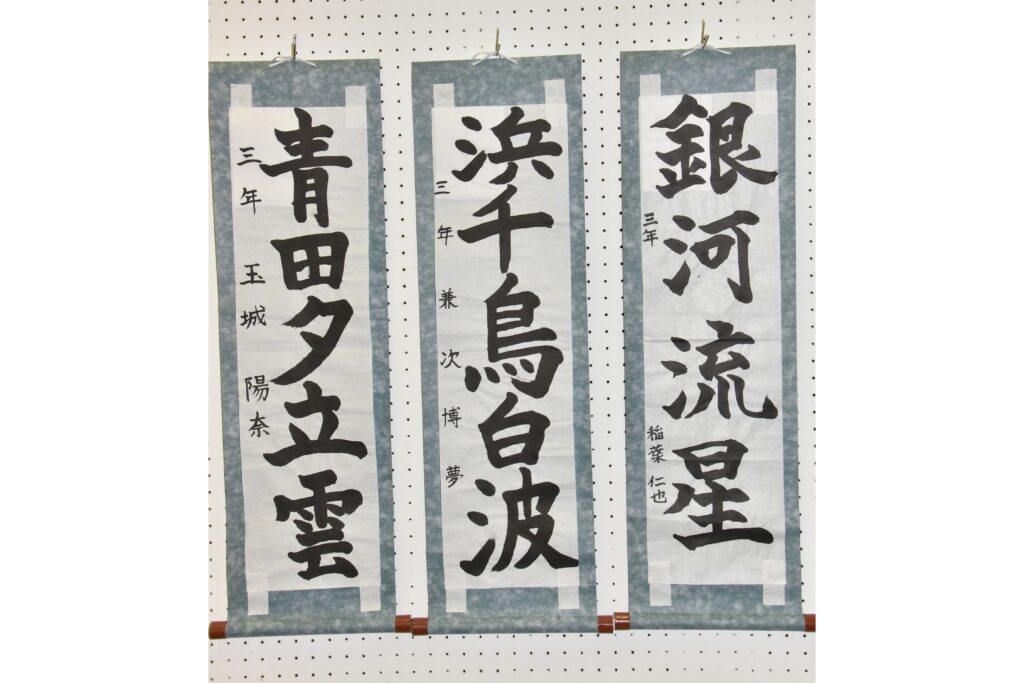 銀河流星
三年 稲葉 仁也
浜千鳥白波
三年 兼次博夢
青田夕立雲
三年 玉城 陽奈